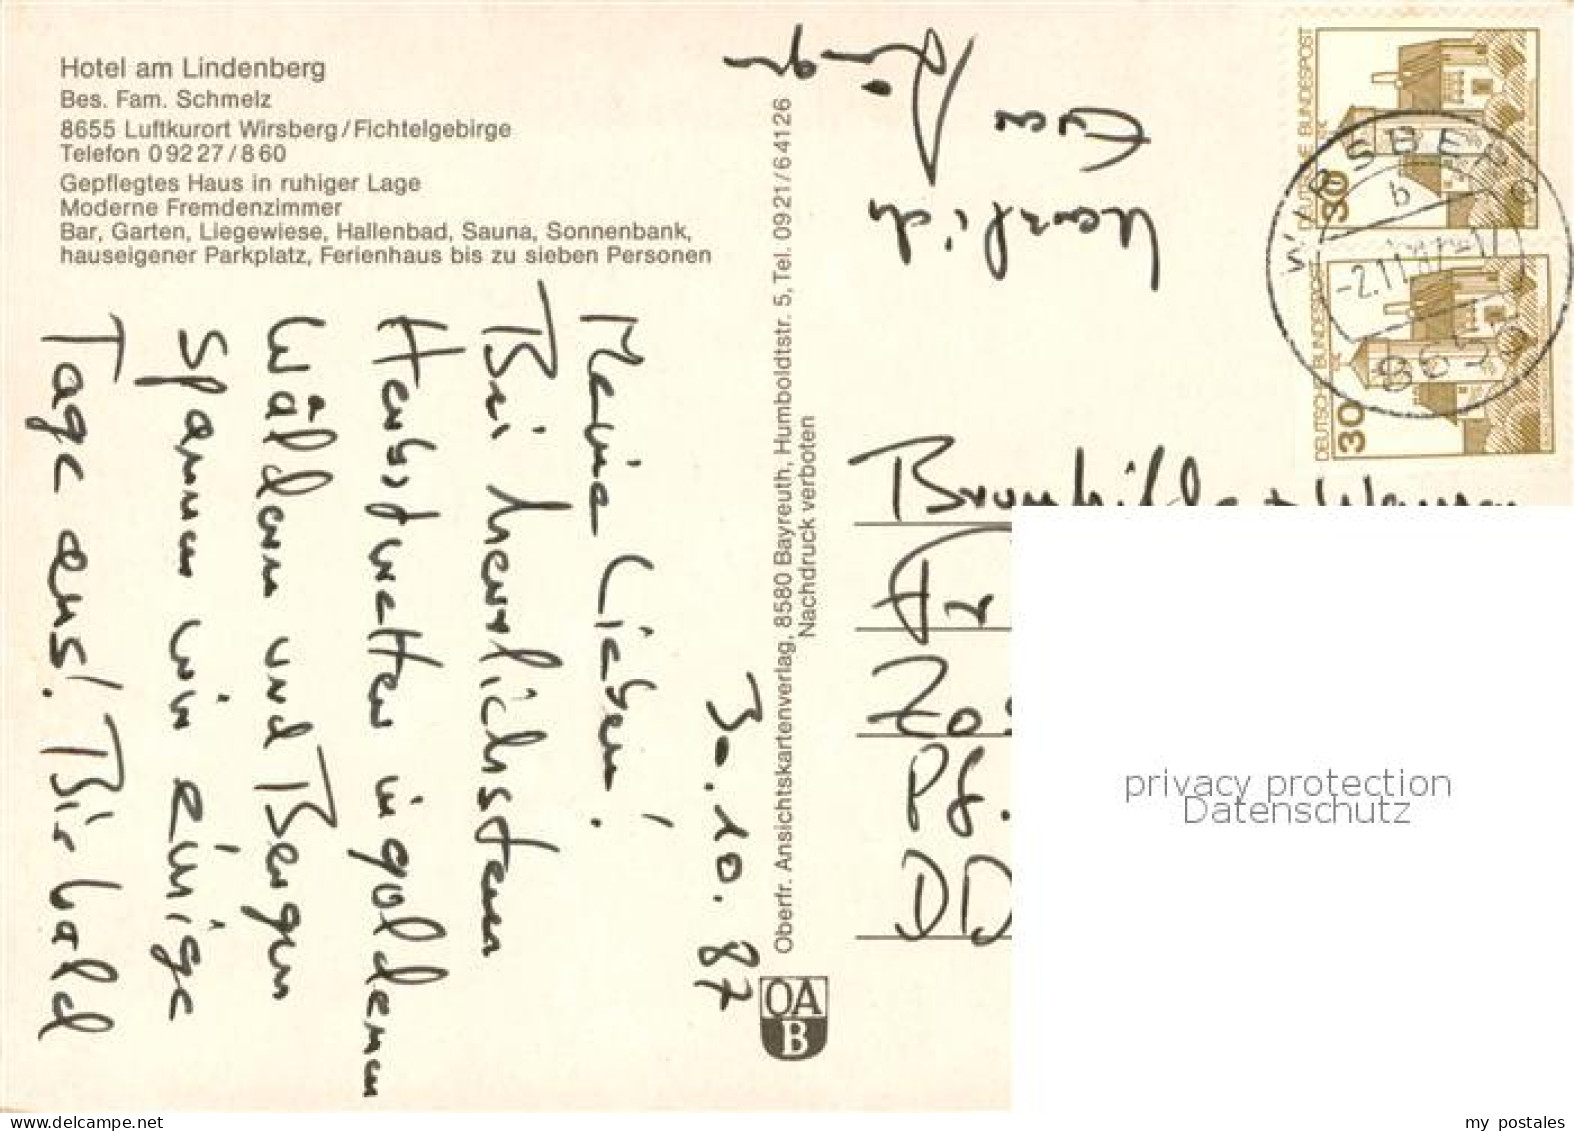 Hotel am Lindenberg
Bes. Fam. Schmelz
8655 Luftkurort Wirsberg/Fichtelgebirge
Telefon 09227/860
Gepflegtes Haus in ruhiger Lage
Moderne Fremdenzimmer
Bar, Garten, Liegewiese, Hallenbad, Sauna, Sonnenbank,
hauseigener Parkplatz, Ferienhaus bis zu sieben Personen
30.10.87
Meine Lieben!
Bei herrlichstem
Herbstwetter in goldenen
Wäldern und Bergen
spannen wir einige
Tage aus! Bis bald
Herzlich
Eure
Oberfr. Ansichtskartenverlag, 8580 Bayreuth, Humboldtstr. 5, Tel. 0921/64126
Nachdruck verboten
OA
B
DEUTSCHE BUNDESPOST
30
DEUTSCHE BUNDESPOST
30
WIRSBERG
b
-2.11.87-17
8655
Brunhilde + Werner
Pf.
DD
privacy protection
Datenschutz
my postales